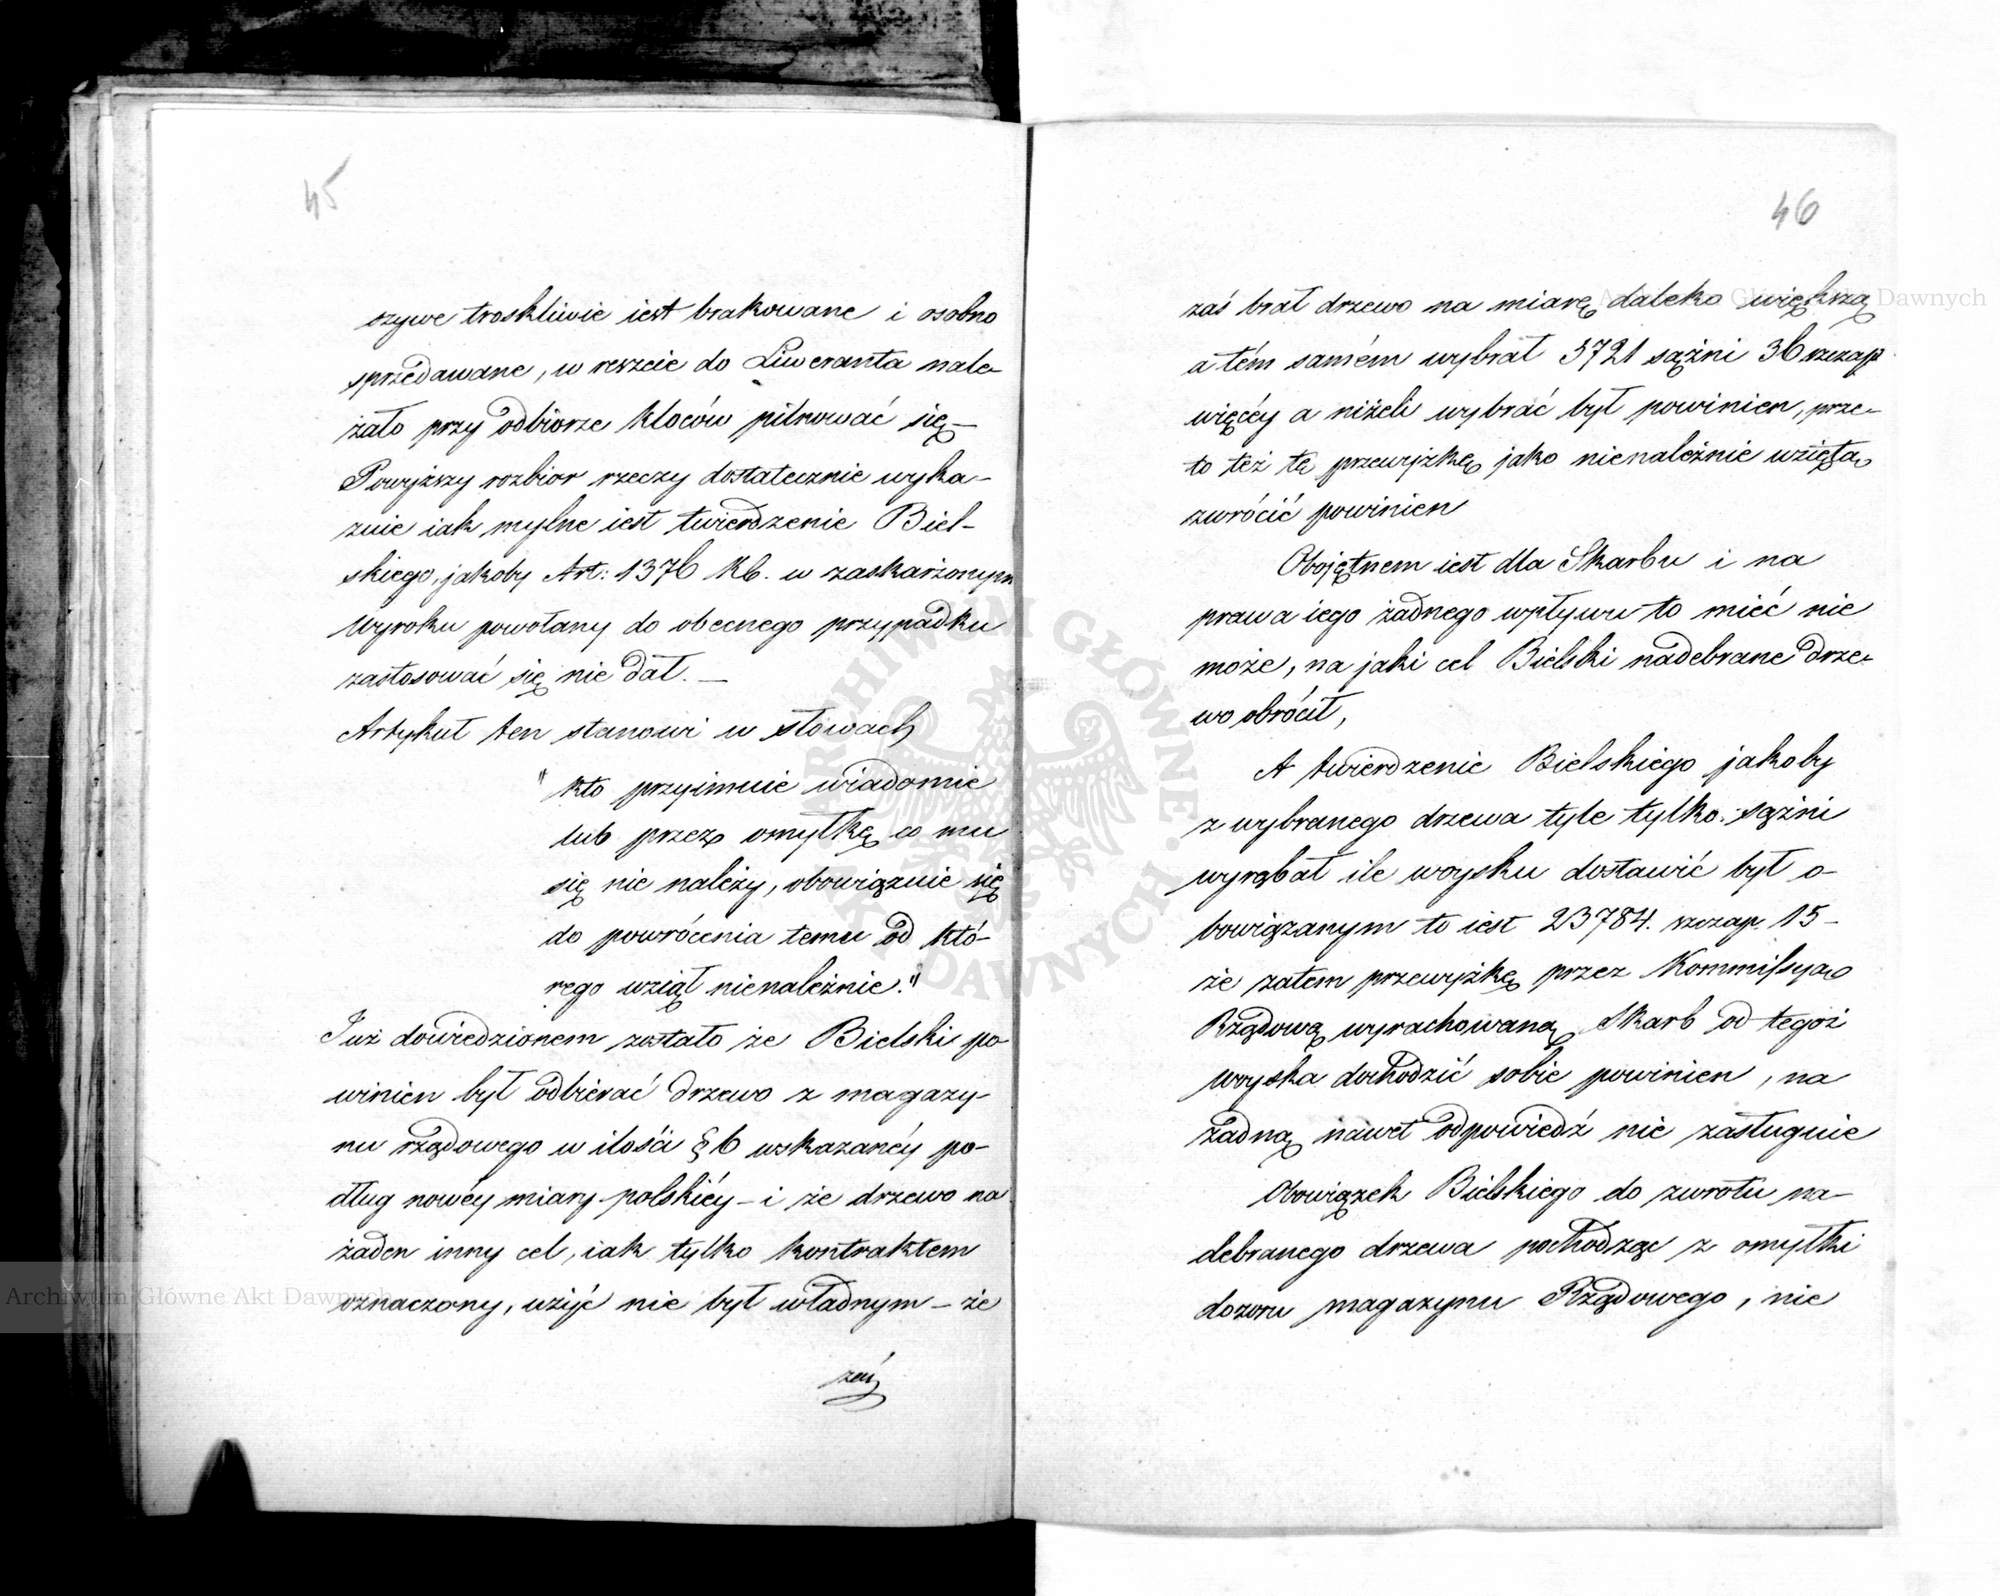 45
szywe troskliwie iest brakowane i osobno
sprzedawane, w reszcie do Liweranta nale-
żało przy odbiorze kloców pilnować się –
Powyższy rozbior rzeczy dostatecznie wyka-
zuie iak mylne iest twierdzenie Biel-
skiego, jakoby Art: 1376 Kb. w zaskarżonym
Wyroku powołany do obecnego przypadku
zastosować się nie dał. –
Artykuł ten stanowi w słowach
" kto przyimuie wiadomie
lub przez omyłkę co mu
się nie należy, obowiązuie się
do powrócenia temu od któ-
rego wziął nienależnie."
Już dowiedzionem zostało że Bielski po-
winien był odbierać drzewo z magazy-
nu rządowego w ilości § 6 wskazanéy po-
dług nowéy miary polskiéy – i że drzewo na
żaden inny cel, iak tylko kontraktem
oznaczony, użyć nie był władnym – że
zaś
46
zaś brał drzewo na miarę daleko większą
a tém samém wybrał 5721 sążni 36 szczap
więcéy a niżeli wybrać był powinien, prze-
to też tę przewyżkę jako nienależnie wziętą
zwrócić powinien
Obojętnem iest dla Skarbu i na
prawa iego żadnego wpływu to mieć nie
może, na jaki cel Bielski nadebrane drze-
wo obrócił,
A twierdzenie Bielskiego jakoby
z wybranego drzewa tyle tylko sążni
wyrąbał ile woysku dostawić był o-
bowiązanym to iest 23784. szczap. 15 –
że zatem przewyżkę przez Kommissyą
Rządową wyrachowaną Skarb od tegoż
woyska dochodzić sobie powinien, na
żadną nawet odpowiedź nie zasługuie
Obowiązek Bielskiego do zwrotu na-
debranego drzewa pochodząc z omyłki
dozoru magazynu Rządowego, nie
Archiwum Główne Akt Dawnych
Archiwum Główne Akt Dawnych
ARCHIWUM GŁÓWNE AKT DAWNYCH